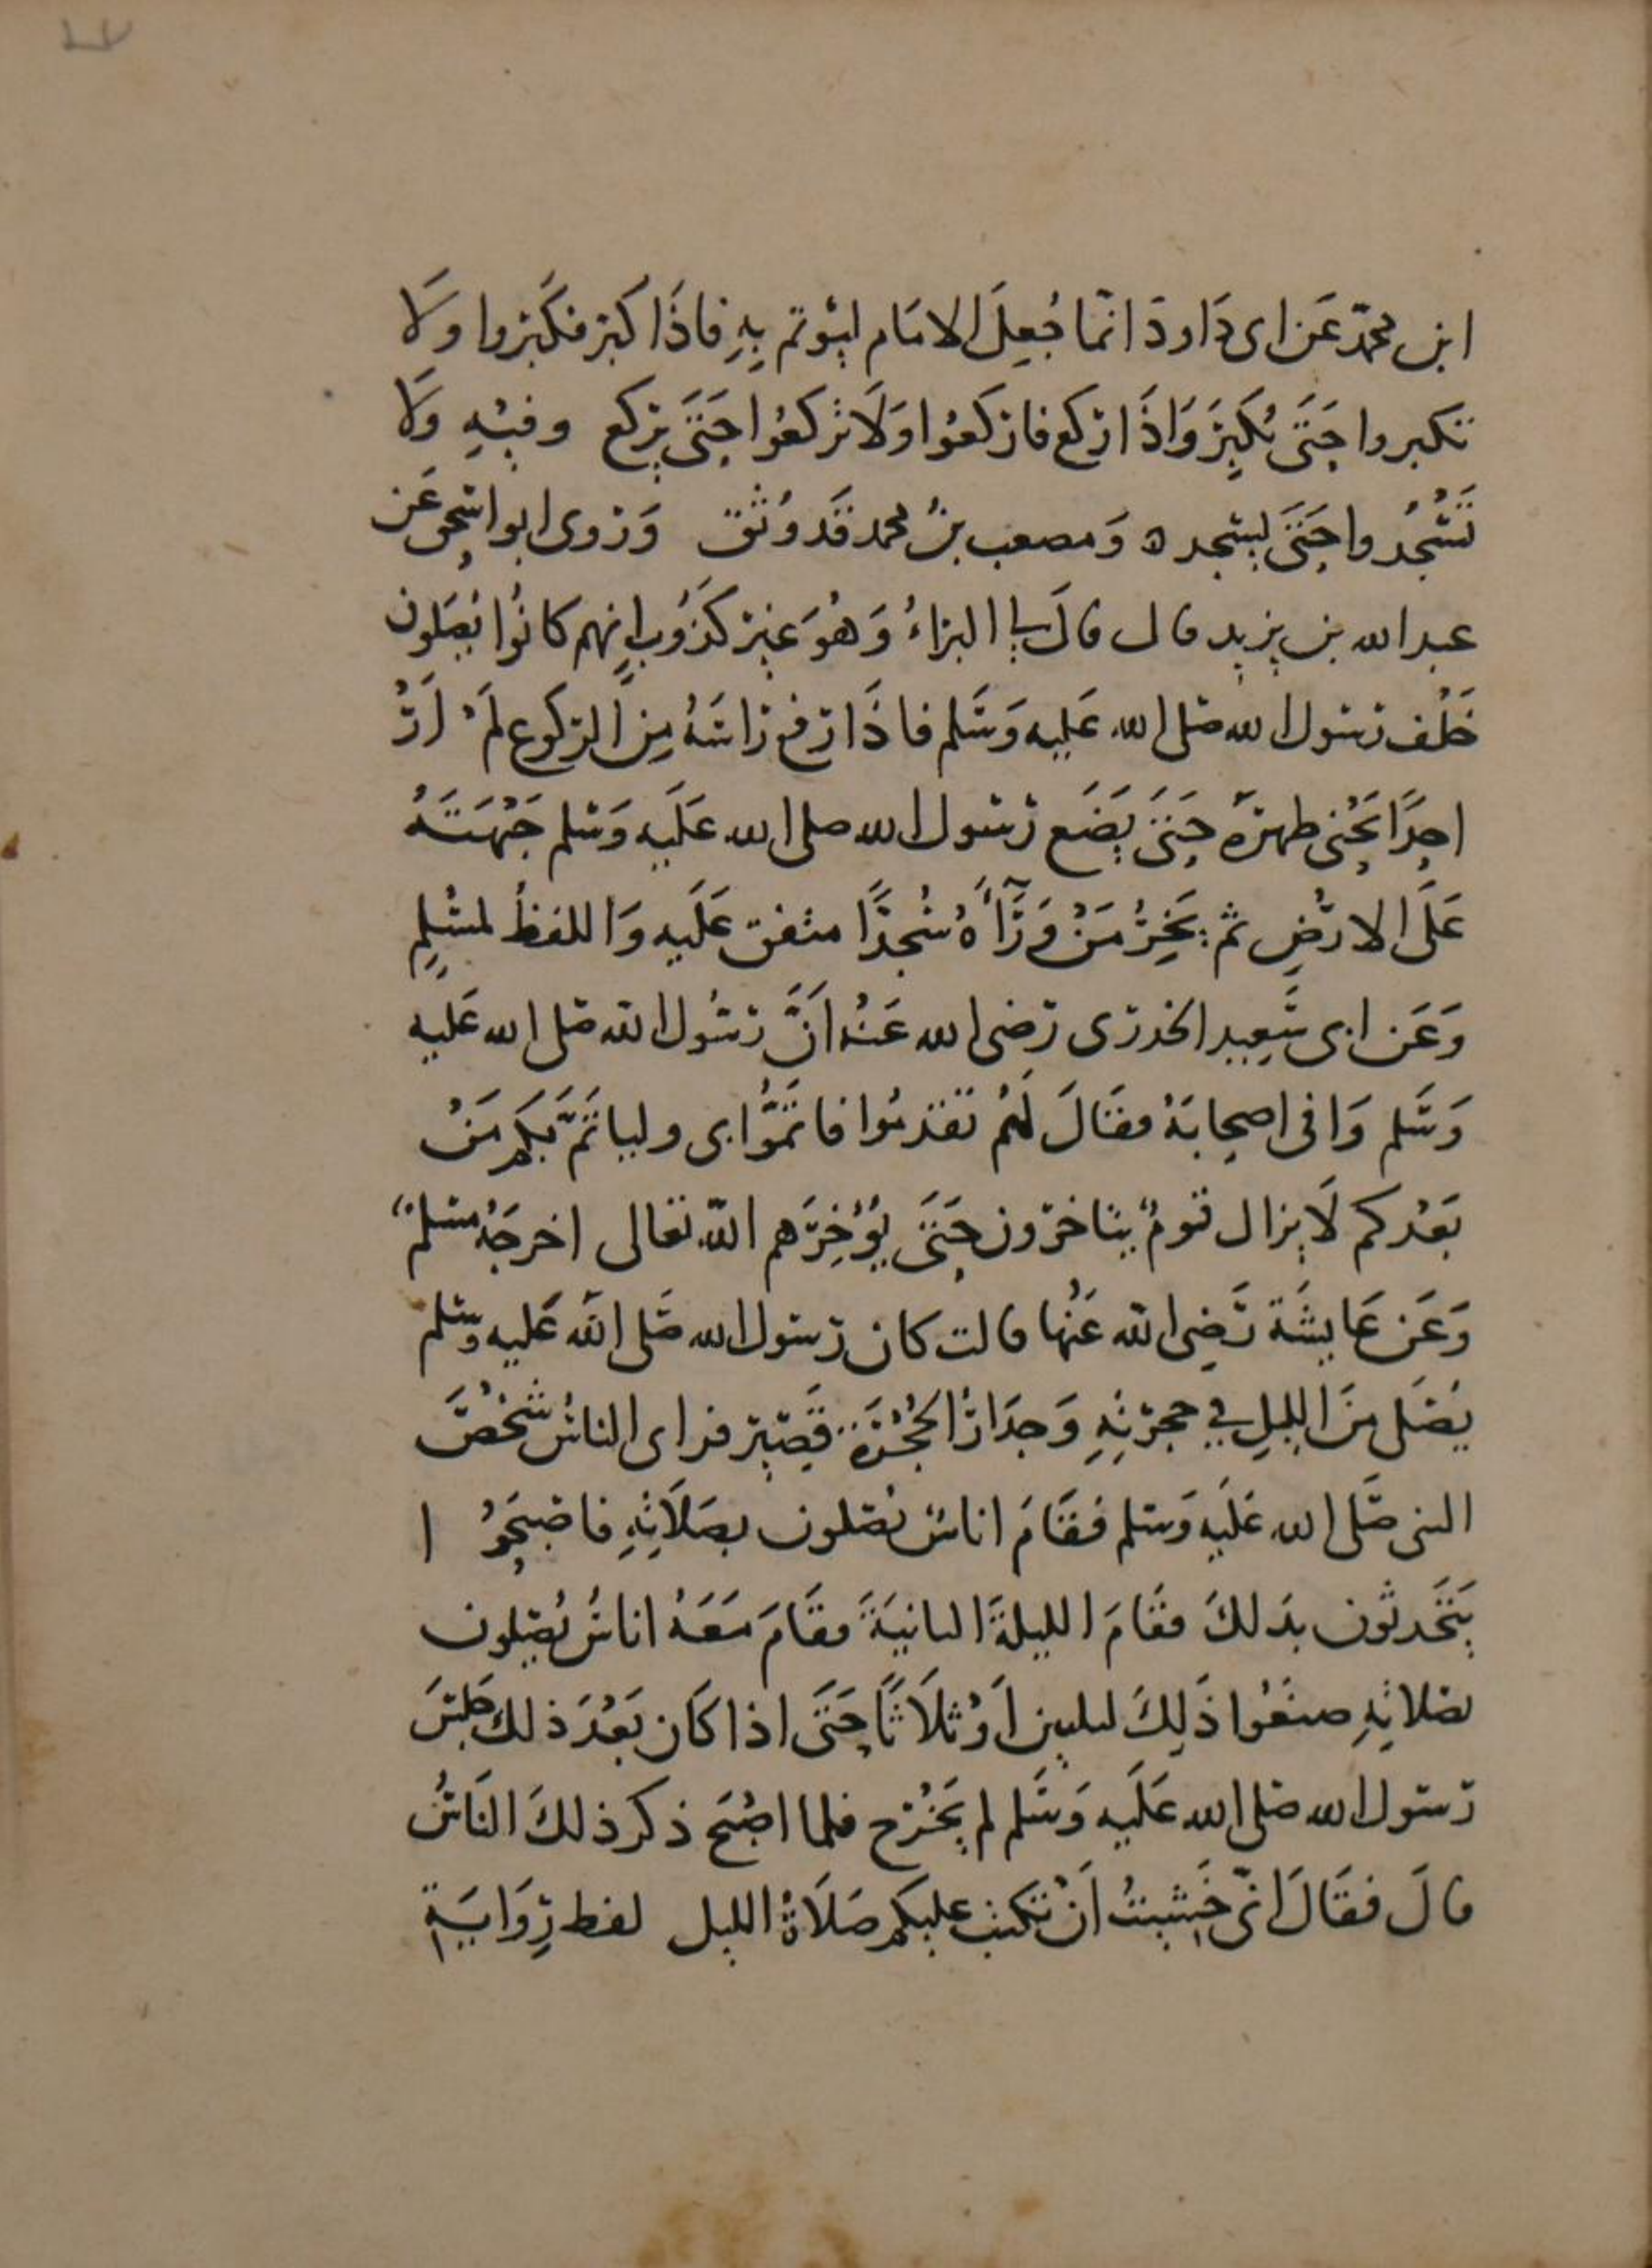 ابن محمّد عَن ابى دَاود انّما جُعِلَ الامَام ليُؤتم بِهِ فاذَا كبر فكَبّروا وَلَا
تكبروا حَتَى يُكَبِرَ وَاذَا ركع فاركعُوا وَلَا تركعُوا حَتَى يركع وفيْهِ وَلَا
تَسْجُدُوا حَتَى يسجد ه وَمصعب بنُ محمد قَد وُثق وَروى ابو اسحق عَن
عبد الله بن يزيد قال قالَ البراءُ وَهُوَ غير كذُوب انهم كانُوا يُصَلون
خَلْف رسُول الله صَلى الله عَليه وَسَلم فاذَا رفع رَاسَهُ مِنَ الركوع لَمْ اَرْ
احدًا يَحْنى ظهرَهُ حَتَى يَضَع رَسُول الله صلى الله عَلَيه وَسَلم جَبْهَتَهُ
عَلَى الارْضِ ثم يَخِرُّ مَنْ وَرَآءَهُ سُجدًا متفق عَلَيه وَاللفظُ لمسْلِمٍ
وَعَن ابى سَعِيد الخدرى رَضى الله عَنْهُ انَّ رسُول الله صَلى الله عَليه
وَسَلم رَاى فى اصحابَهُ فقَالَ لَهُم تقدمُوا فاتَمُّوا بى ولياتَمَّ بكم مَنْ
بَعْدكم لَا يزال قومٌ يتاخرون حَتَى يُؤَخِرَهم الله تعَالى اخرجَهُ مسلمٌ
وَعَن عَايشَة رَضِى الله عَنْها قالت كان رَسُول الله صَلى الله عَليه وسَلم
يُصَلى منَ الليلِ في حجرتهِ وَجدَارُ الحُجْرَة قَصِير فراى الناسُ شَخْصَ
النبى صَلى الله عَلَيه وَسَلم فقَامَ اناسٌ يُصَلون بصَلَاتِهِ فاصْبَحُوا
يَتَحَدثون بذلكَ فقَامَ الليلةَ الثانيَةَ فقَامَ مَعَهُ اناسٌ يُصَلون
بصَلاتِهِ صنعُوا ذَلِكَ ليلتين اَوْ ثلَاثًا حَتَى اذا كَان بَعْدَ ذلك جَلسَ
رَسُول الله صَلى الله عَلَيه وَسَلم لم يَخْرج فلما اصْبَح ذكر ذلكَ النَاسُ
قالَ فقَالَ انّى خَشِيتُ اَنْ تكتبَ عليكم صَلَاةُ الليل لفظ رِوَايَةِ